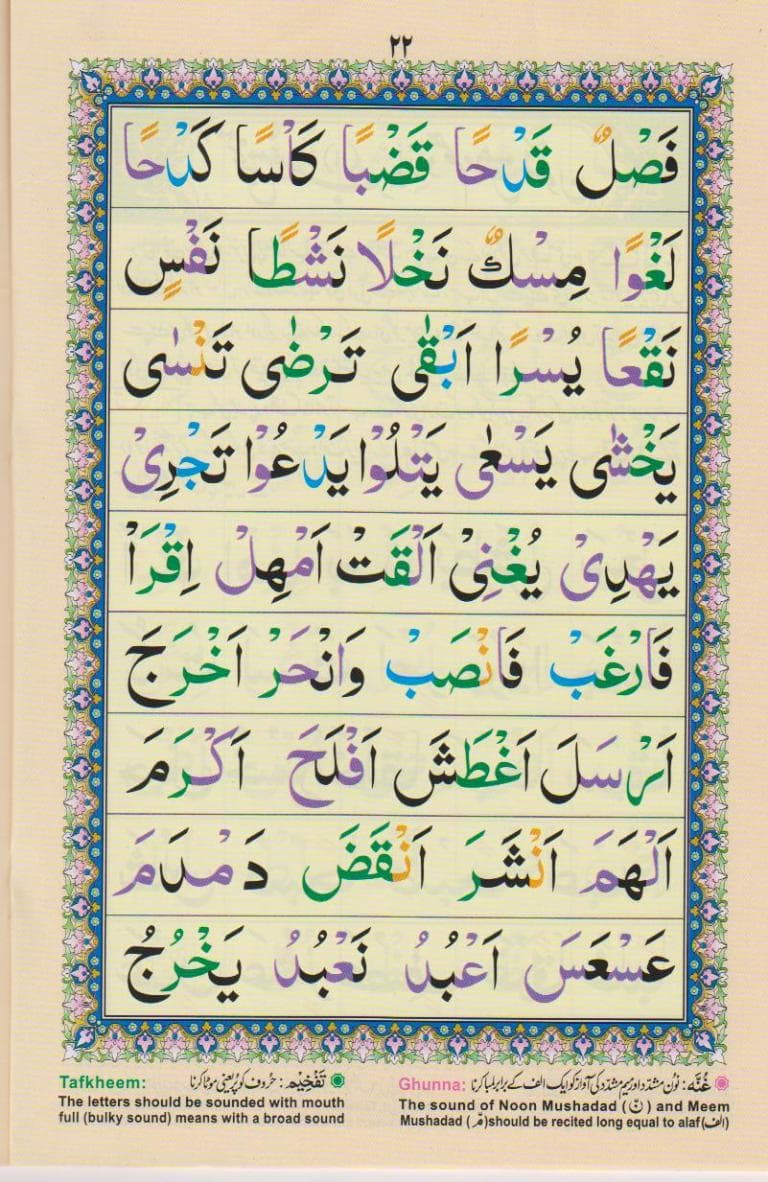 ٢٢
فَصْلٌ قَدْحًا قَضْبًا كَاْسًا كَدْحًا
لَغْوًا مِسْكٌ نَخْلًا نَشْطًا نَفْسٍ
نَقْعًا يُسْرًا اَبْقٰى تَرْضٰى تَنْسٰى
يَخْشٰى يَسْعٰى يَتْلُوْا يَدْعُوْا تَجْرِىْ
يَهْدِىْ يُغْنِىْ اَلْقَتْ اَمْهِلْ اِقْرَاْ
فَارْغَبْ فَانْصَبْ وَانْحَرْ اَخْرَجَ
اَرْسَلَ اَغْطَشَ اَفْلَحَ اَكْرَمَ
اَلْهَمَ اَنْشَرَ اَنْقَضَ دَمْدَمَ
عَسْعَسَ اَعْبُدُ نَعْبُدُ يَخْرُجُ
Ghunna: غُنَّه: نون مشدّد اور میم مشدّد کی آواز کو ایک الف کے برابر لمبا کرنا
The sound of Noon Mushadad (نّ) and Meem
Mushadad (مّ)should be recited long equal to alaf(الف)
Tafkheem: تَفْخِيْم: حروف کو پُر یعنی موٹا کرنا
The letters should be sounded with mouth
full (bulky sound) means with a broad sound